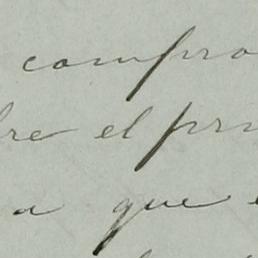 compro
bre el pri
a que